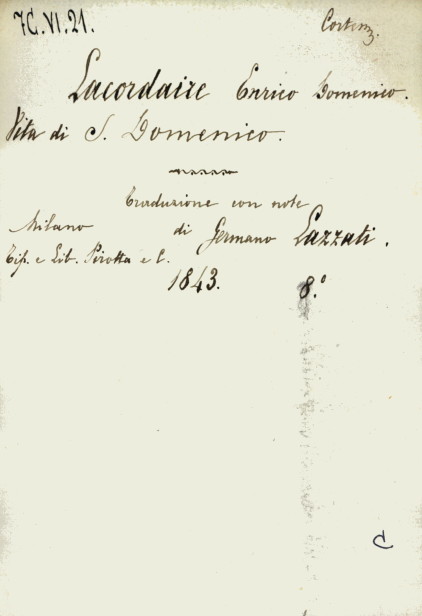 7C.VI.21.
Lacordaire Enrico Domenico.
Vita di S. Domenico.
Traduzione con note
di Germano Lazzati.
Milano
Tip. e Lib. Pirotta e C.
1843. 8.°
C